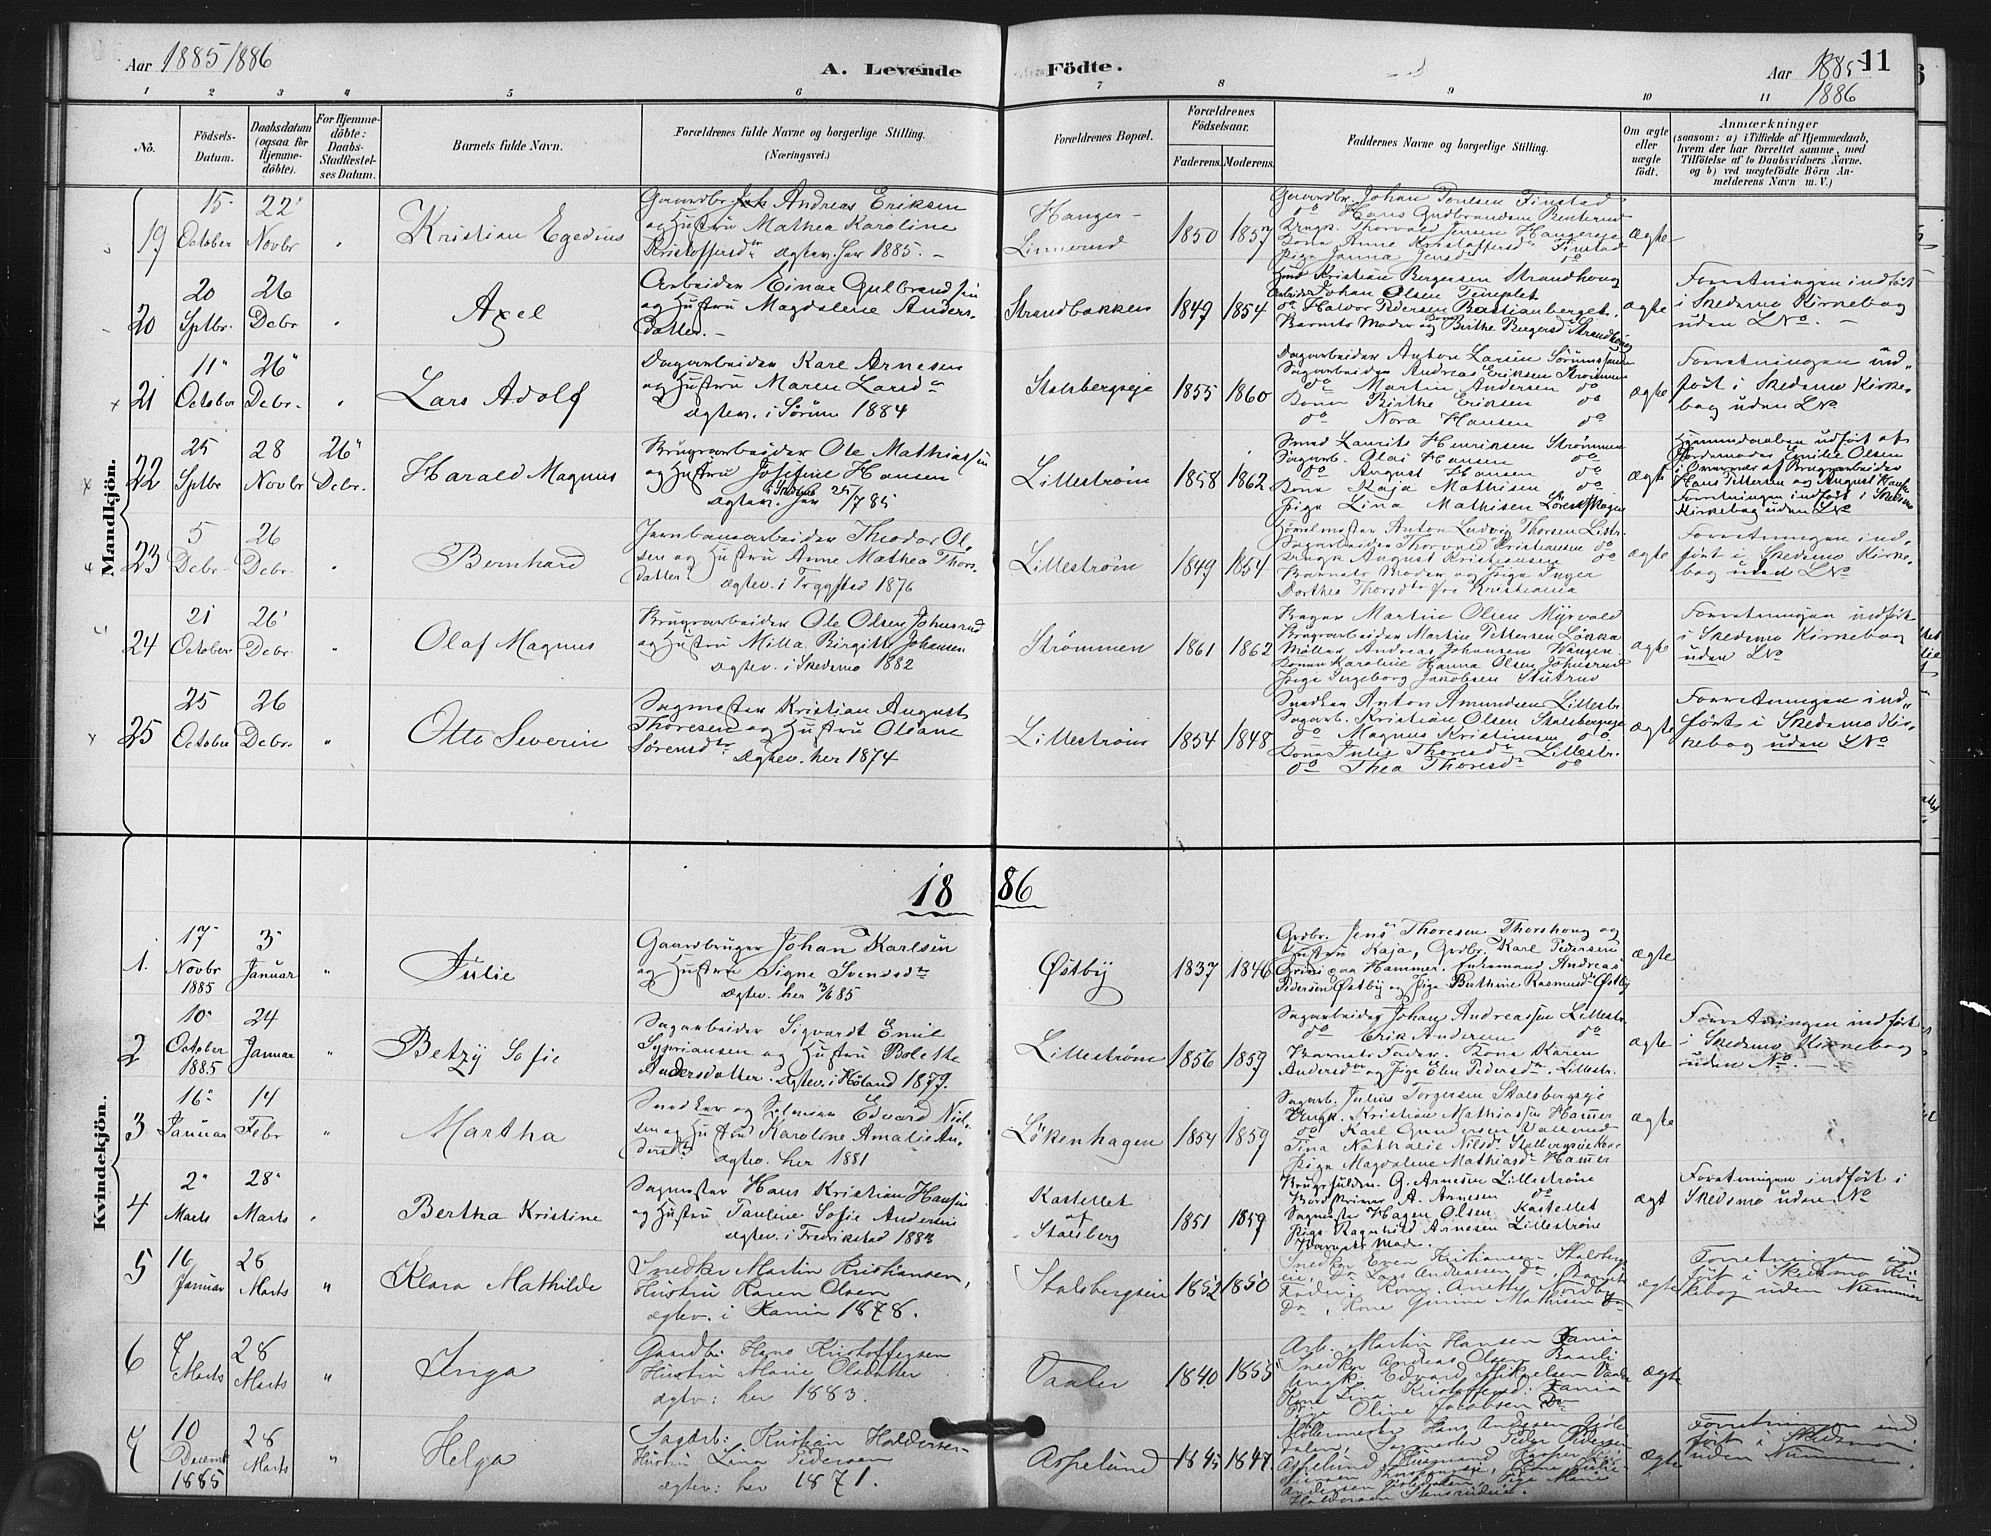 Aar 1885/1886
A. Levende Födte.
Aar 1885
1886
11
1 2 3 4 5 6 7 8 9 10 11
No.
Födsels-Datum.
Daabsdatum (ogsaa for Hjemme-döbte).
For Hjemme-döbte: Daabs-Stadfæstel-ses Datum.
Barnets fulde Navn.
Forældrenes fulde Navne og borgerlige Stilling.
(Næringsvei.)
Forældrenes Bopæl.
Forældrenes Födselsaar.
Faderens. Moderens.
Faddernes Navne og borgerlige Stilling.
Om ægte eller uægte födt.
Anmærkninger
(saasom: a) i Tilfælde af Hjemmedaab,
hvem der har forrettet samme, med
Tilföielse af to Daabsvidners Navne.
og b) ved uægtefödte Börn An-
melderens Navn m. V.)
Mandkjön.
19
15 October
22 Novbr
Kristian Egedius
Gaardbr. Andreas Eriksen
og Hustru Mathea Karoline
Kristoffersdtr Ægtev. her 1885. -
Hanger-
Linnerud
1850 1857
Gaardbr. Johan Poulsen Finstad
do Hans Gudbrandsen
Ungk. Thorvald Jensen Hangereje
Kona Anne Kristoffersdr Finstad
Pige Janna Jensdr do
Ægte
20
20 Sptbr.
26 Debr
Axel
Arbeider Einar Gulbrandsen
og Hustru Magdalene Anders-
datter. -
Strandbakken
1849 1854
Kristian Borgersen Strandhoug
Arbeider Johan Olsen Templet
do Halvor Pedersen Bastianberget.
Barnets Moder og Kone Birthe Borgersd Strandhoug
ægte
Forretningen indfört
i Skedsmo Kirkebog
uden LNo. -
21
11 October
26 Debr.
Lars Adolf
Dagarbeider Karl Arnesen
og Hustru Maren Larsdr
Ægtev. i Sörum 1884
Stalsbergeje
1855 1860
Dagarbeider Anton Larsen Sörumsanden
Sagarbeider Andreas Eriksen Strömmen
do Martin Andersen do
Kona Birthe Eriksen do
do Nora Hansen do
ægte
Forretningen ind-
fört i Skedsmo Kirke-
bog uden LNo
22
25 Sptbr
28 Novbr
26 Debr.
Harald Magnus
Brugsarbeider Ole Mathiassen
og Hustru Josefine Hansen
Ægtev. i Skedsmo 25/7 85
Lilleström
1858 1862
Smed Laurits Henriksen Strömmen
Sagarb. Olai Hansen do
do August Hansen do
Kona Kaja Mathisen do
Pige Lina Mathisen
ægte
Hjemmedaaben udfört af
Jordemoder Emilie Olsen
i Overvær af Brugsarbeider
Hans Pettersen og August Hansen
Forretningen indfört i Skedsmo
Kirkebog uden LNo
23
5 Debr.
26 Debr.
Bernhard
Jernbanearbeider Theodor Ol-
sen og Hustru Anne Mathea Thors-
datter. Ægtev. i Trygstad 1876
Lilleström
1849 1854
Anton Ludvig Thorsen Lillestr.
Sagarbeider Thorvald Kristiansen do
Ungk. August Kristiansen do
Barnets Moder og Pige Inger
Dorthea Thorsdr fra Kristiania
ægte
Forretningen ind-
fört i Skedsmo Kirke-
bog uden LNo
24
21 October
26 Debr.
Olaf Magnus
Brugsarbeider Ole Olsen Johnsrud
og Hustru Milla Birgitte Johansen
Ægtev. i Skedsmo 1882
Strömmen
1861 1862
Bager Martin Olsen Myrvold
Brugsarbeider Martin Pettersen Lökka
Möller Andreas Johansen Wangen
Konen Karoline Hanna Olsen Johnsrud
Pige Ingeborg Jakobsen Stutrud
ægte
Forretningen indfört
i Skedsmo Kirkebog
uden LNo
25
25 October
26 Debr.
Otto Severin
Sagmester Kristian August
Thoresen og Hustru Oleane
Sörensdtr. Ægtev. her 1874
Lilleström
1854 1848
Snedker Anton Amundsen Lillestr.
Sagarb. Kristian Olsen Stalsbergeje
do Magnus Kristiansen do
Kona Julie Thoresdr Lillestr.
do Thea Thoresdr do
ægte
Forretningen ind-
fört i Skedsmo Kir-
kebog uden LNo
1886
Kvindekjön.
1.
17 Novbr 1885
3 Januar
Julie
Gaardbruger Johan Karlsen
og Hustru Signe Svendsdtr
Ægtev. her 3/6 85
Østby
1837 1846
Grdbr. Jens Thoresen Thorshoug og
Hustru Kaja, Grdbr. Karl Pedersen
Hammer. Enkemand Andreas
Pedersen Østby og Pige Berthine Rasmusdr Østby
ægte
2
10 October 1885
24 Januar
Betzy Sofie
Sagarbeider Sigvardt Emil
Sypriansen og Hustru Bolette
Andersdatter. Ægtev. i Höland 1879.
Lilleström
1856 1859
Sagarbeider Johan Andreassen Lillestr.
do Erik Andersen do
Barnets Fader. Kona Karen
Andersdtr og Pige Elen Pedersdtr. Lillestr.
ægte
Forretningen indfört
i Skedsmo Kirkebog
uden No. -
3
16 Januar
14 Febr
Martha
Snedker og Edvard Niel-
sen og Hustru Karoline Amalie An-
dersd. Ægtev. her 1881
Lökenhagen
1854 1859
Sagarb. Julius Torgersen Stalsbergeje
Ungk. Kristian Mathiassen Hammer
do Karl Gundersen Vallerud
Tina Nathalie Nilsdr
Pige Magdalene Mathiasdr Hammer
ægte
4
2 Marts
28 Marts
Bertha Kristine
Sagmester Hans Kristian Hansen
og Hustru Pauline Sofie Andersen
Ægtev. i Fredrikstad 1883
Kastellet
af
Stalsberg
1851 1859
Brugsfuldm. G. Arnesen Lilleström
A. Arnesen do
Sagmester Hagen Olsen Kastellet
Pige Ragnhild Arnesen Lilleström
Barnets Moder
ægt
Forretningen indfört i
Skedsmo uden No
5
16 Januar
28 Marts
Klara Mathilde
Snedker Martin Kristiansen,
Hustru Karen Olsen
ægtev. i Xania 1878.
Stalsbergeie
1852 1850
Snedker Even Kristiansen Stalsberg
eie, Do Lars Andreassen Do, Barnets
Fader, Kone Anette Nordby
Do, Kone Gunine Mathisen Do
ægte
Forretningen ind
fört i Skedsmo Kir
kebog uden Nummer
6
7 Marts
28 Marts
Inga
Gaardb: Hans Kristoffersen
Hustru Marie Olsdatter
ægtev: her 1883.
Vaaler
1840 1855
Arb. Martin Hansen Xania
Snedker Andreas Olsen
Ungk. Edvard Mikaelsen Vaaler
Kone Lina Kristoffersd: Xania
Oline Jacobsen Do
ægte
7
10 Decemb 1885
28 Marts
Helga
Sagarb: Kristian Haldorsen
Hustru Lina Pedersen
ægtev: her 1871.
Aspelund
1845 1847
Möllermester Hans Andersen
dalen, Sagmester Peder Pedersen
Aspelund,
Andersen Pige Marie
Haldorsen
ægte
Forretningen ind
fört i Skedsmo
uden Nummer.